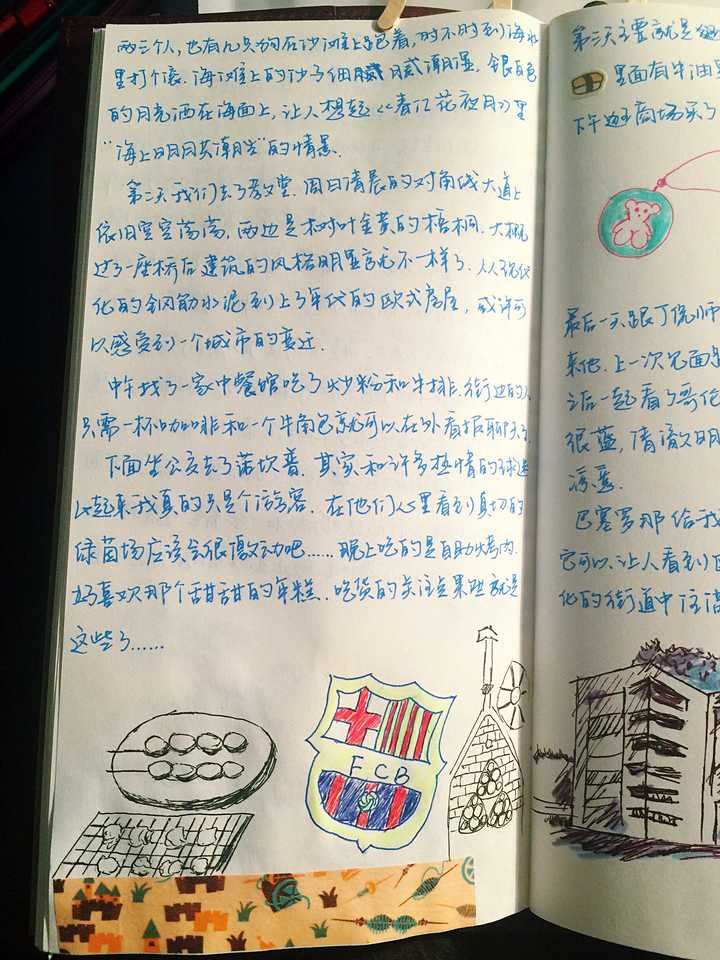 两三个人，也有几只狗在沙滩上跑着，时不时到海水
里打个滚．海滩上的沙子细腻 潮湿，银白色
的月亮洒在海面上，让人想起《春江花夜月》里
“海上明月共潮生”的情景．
第二天我们去了教堂．周日清晨的对角线大道上
依旧空空荡荡，两边是树叶金黄的梧桐．大概
过了一座桥后建筑的风格明显就不一样了．从现代
化的钢筋水泥到上了年代的欧式房屋，或许可
以感受到一个城市的变迁．
中午找了一家中餐馆吃了炒粉和牛排．街边的人
只需一杯咖啡和一个牛角包就可以在外看报聊天了．
下面坐公交去了诺坎普．其实和许多热情的球迷
比起来我真的只是个游客．在他们心里看到真切的
绿茵场应该会很激动吧……晚上吃的是自助烤肉．
好喜欢那个甜甜的年糕．吃货的关注点果然就是
这些了……
FCB
第三天主要就是
里面有牛油果
下午逛商场买了
最后一天跟丁 师
来他．上一次见面是
之后一起看了哥伦
很蓝，清澈明
巴塞罗那给我
它可以让人看到
化的街道中